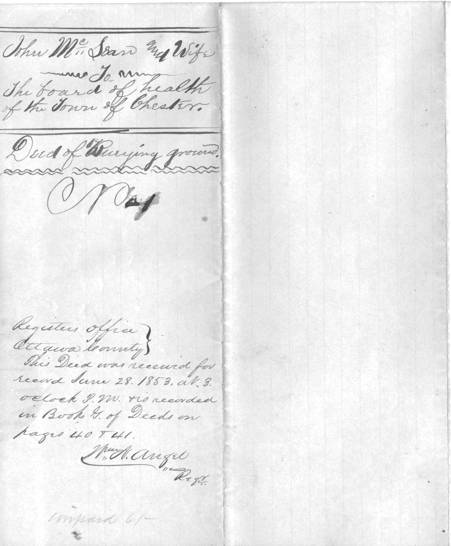 John Mc Lean and Wife
To
The board of health
of the Town of Chester.
Deed of Burying ground.
Registers office }
Ottawa County }
This Deed was received for
record June 28. 1853. at 3.
oclock P.M. & is recorded
in Book G. of Deeds on
pages 40 & 41.
Wm. N. Angel
Regr.